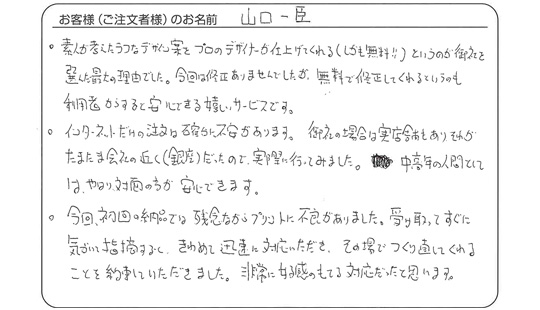 お客様（ご注文者様）のお名前　山口一臣
。素人が考えたようなデザイン案をプロのデザイナーが仕上げてくれる（しかも無料!!）というのが御社を
選んだ最大の理由でした。今回は修正ありませんでしたが、無料で修正してくれるというのも
利用者からすると安心できる嬉しいサービスです。
。インターネットだけの注文は確かに不安があります。御社の場合は実店舗もあり それが
たまたま会社の近く（銀座）だったので、実際に行ってみました。 中高年の人間としては
は、やはり対面の方が安心できます。
。今回、初回の納品では残念ながらプリントに不良がありました。受け取ってすぐに
気がついて指摘すると、きわめて迅速に対応いただき、その場でつくり直してくれる
ことを約束していただきました。非常に好感のもてる対応だったと思います。